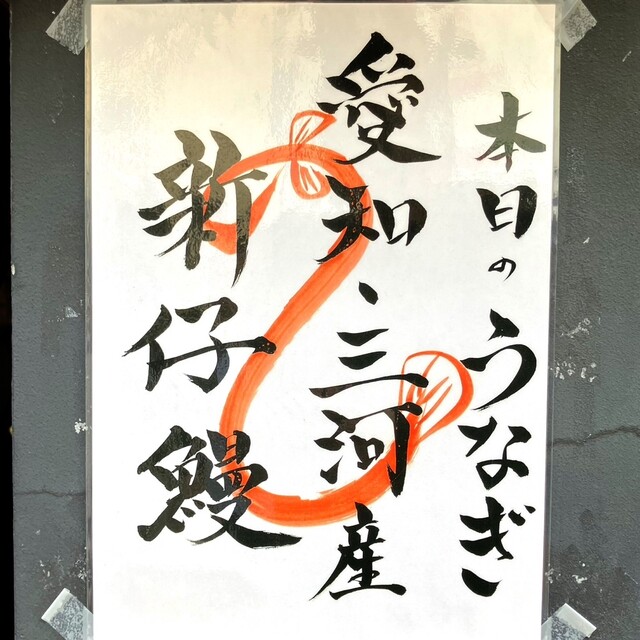 本日のうなぎ
愛知、三河産
新仔鰻